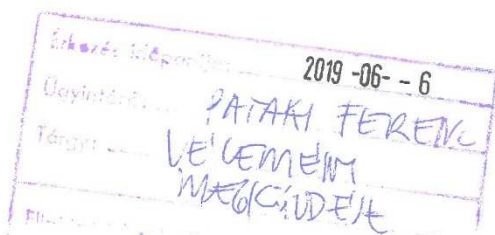 Érkezés időpontja: 2019 -06- - 6
Ügyintéző: PATAKI FERENC
Tárgy: VÉLEMÉNY
MEGKÜLDÉSE